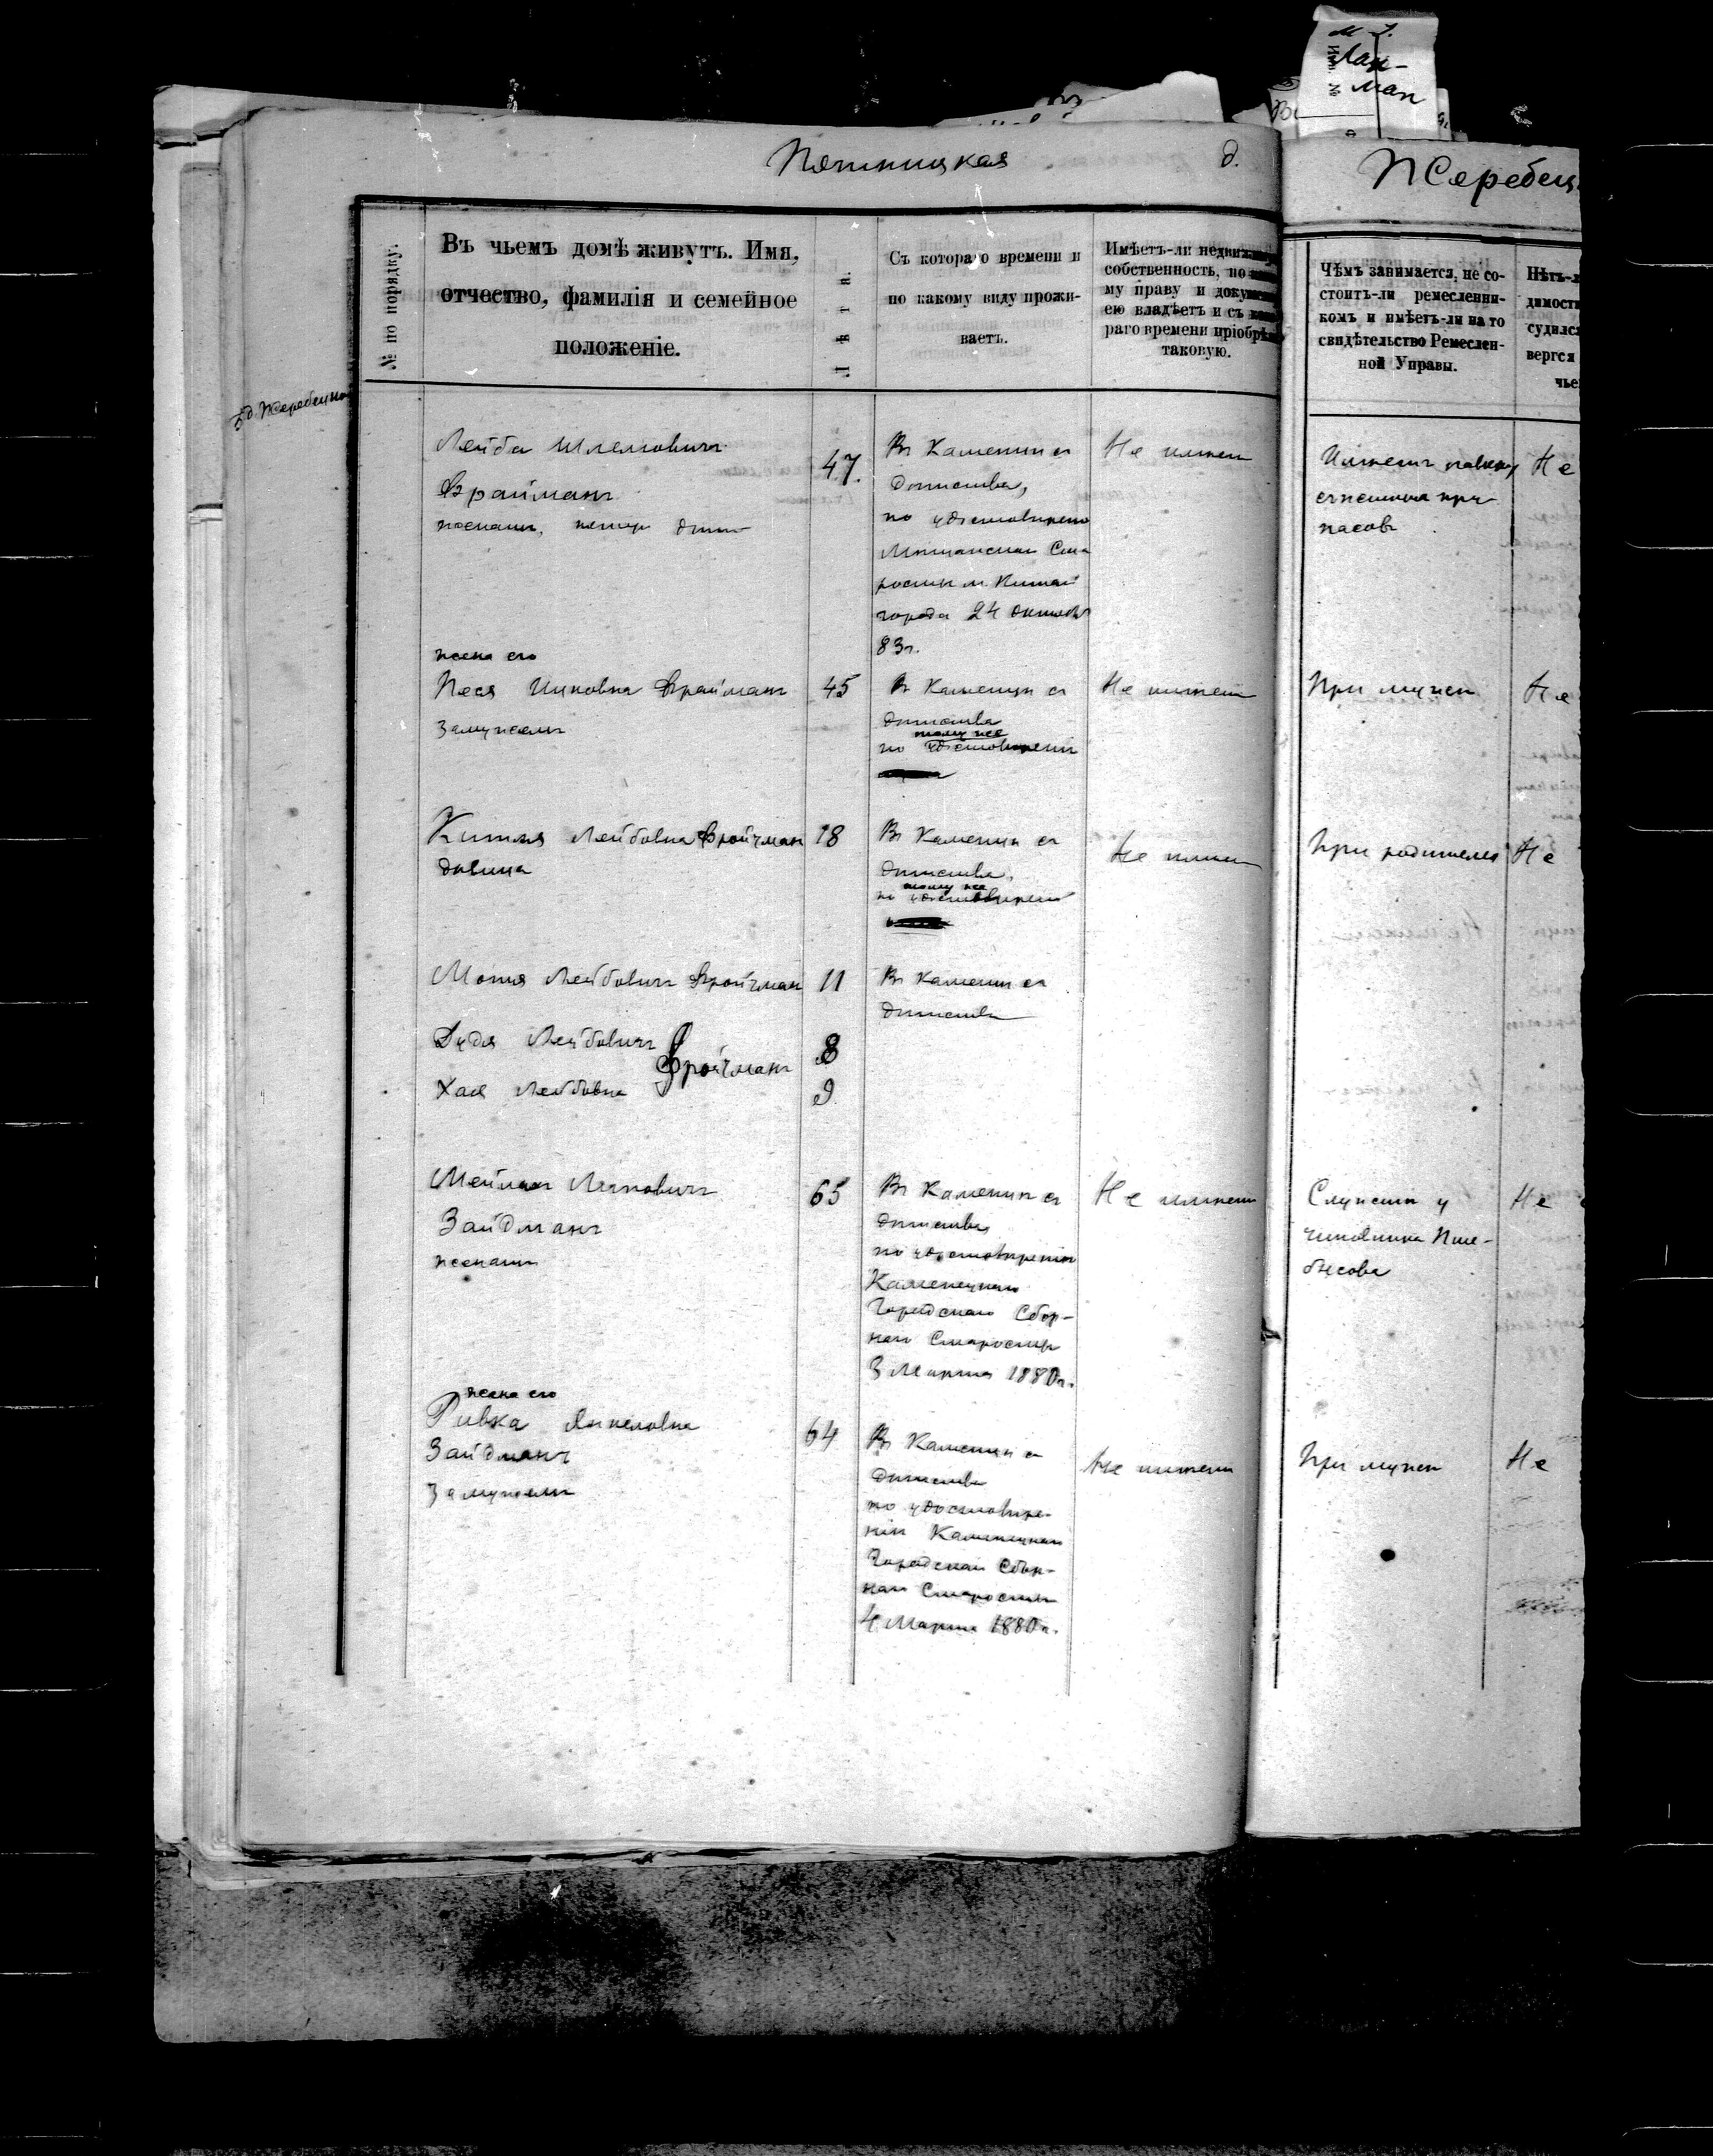 М
Лан-
ман
Пятницкая д.
Жеребец
№ по порядку.
Въ чьемъ домѣ живутъ. Имя,
отчество, фамилія и семейное
положеніе.
Лѣта.
Съ котораго времени и
по какому виду прожи-
ваетъ.
Имѣетъ-ли недвиж
собственность, по
му праву и докум
ею владѣетъ и съ
раго времени пріобрѣ
таковую.
Чѣмъ занимается, не со-
стоитъ-ли ремесленни-
комъ и имѣетъ-ли на то
свидѣтельство Ремеслен-
ной Управы.
Нѣтъ-л
димости
судилс
вергся
чье
д. Жеребецко
Лейба Шлемовичъ
Фрайманъ
женатъ, дѣти
47
Въ Каменцѣ съ
дѣтства,
по удостовѣренію
Мѣщанскаго Ста
росты м. Китай
города 24 Октября
83 г.
Не имѣетъ
Имѣетъ лавку
съѣстныхъ при-
пасовъ
Не
жена его
Песя Ицковна Фрайманъ
замужемъ
45
Въ Каменцѣ съ
дѣтства
тому же
по удостовѣренію
Не имѣетъ
При мужѣ
Не
Лейбовна Фройчман
дѣвица
18
Въ Каменцѣ съ
дѣтства,
тому же
по удостовѣренію
Не имѣетъ
При родителяхъ
Не
Мотя Лейбовичъ Фройчман
11
Въ Каменцѣ съ
дѣтства
Дудя Лейбовичъ
8
Фройчманъ
Хая Лейбовна
9
Мейлахъ Ицковичъ
Зайдманъ
женатъ
65
Въ Каменцѣ съ
дѣтства,
по удостовѣренію
Каменецкаго
Городскаго Сбор-
наго Старосты
3 Марта 1880 г.
Не имѣетъ
Служитъ у
чиновника
Не
жена его
Ривка Янкеловна
Зайдманъ
замужемъ
64
Въ Каменцѣ съ
дѣтства
по удостовѣре-
нію Каменецкаго
Городскаго Сбор-
наго Старосты
4 Марта 1880 г.
Не имѣетъ
При мужѣ
Не